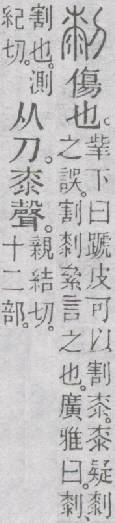 𠞛傷也。
下曰蹏皮可以割桼。桼疑𠞛
之誤。割𠞛絫言之也。廣雅曰。𠞛
割也。測
紀切。
从刀。桼聲。
親結切。
十二部。